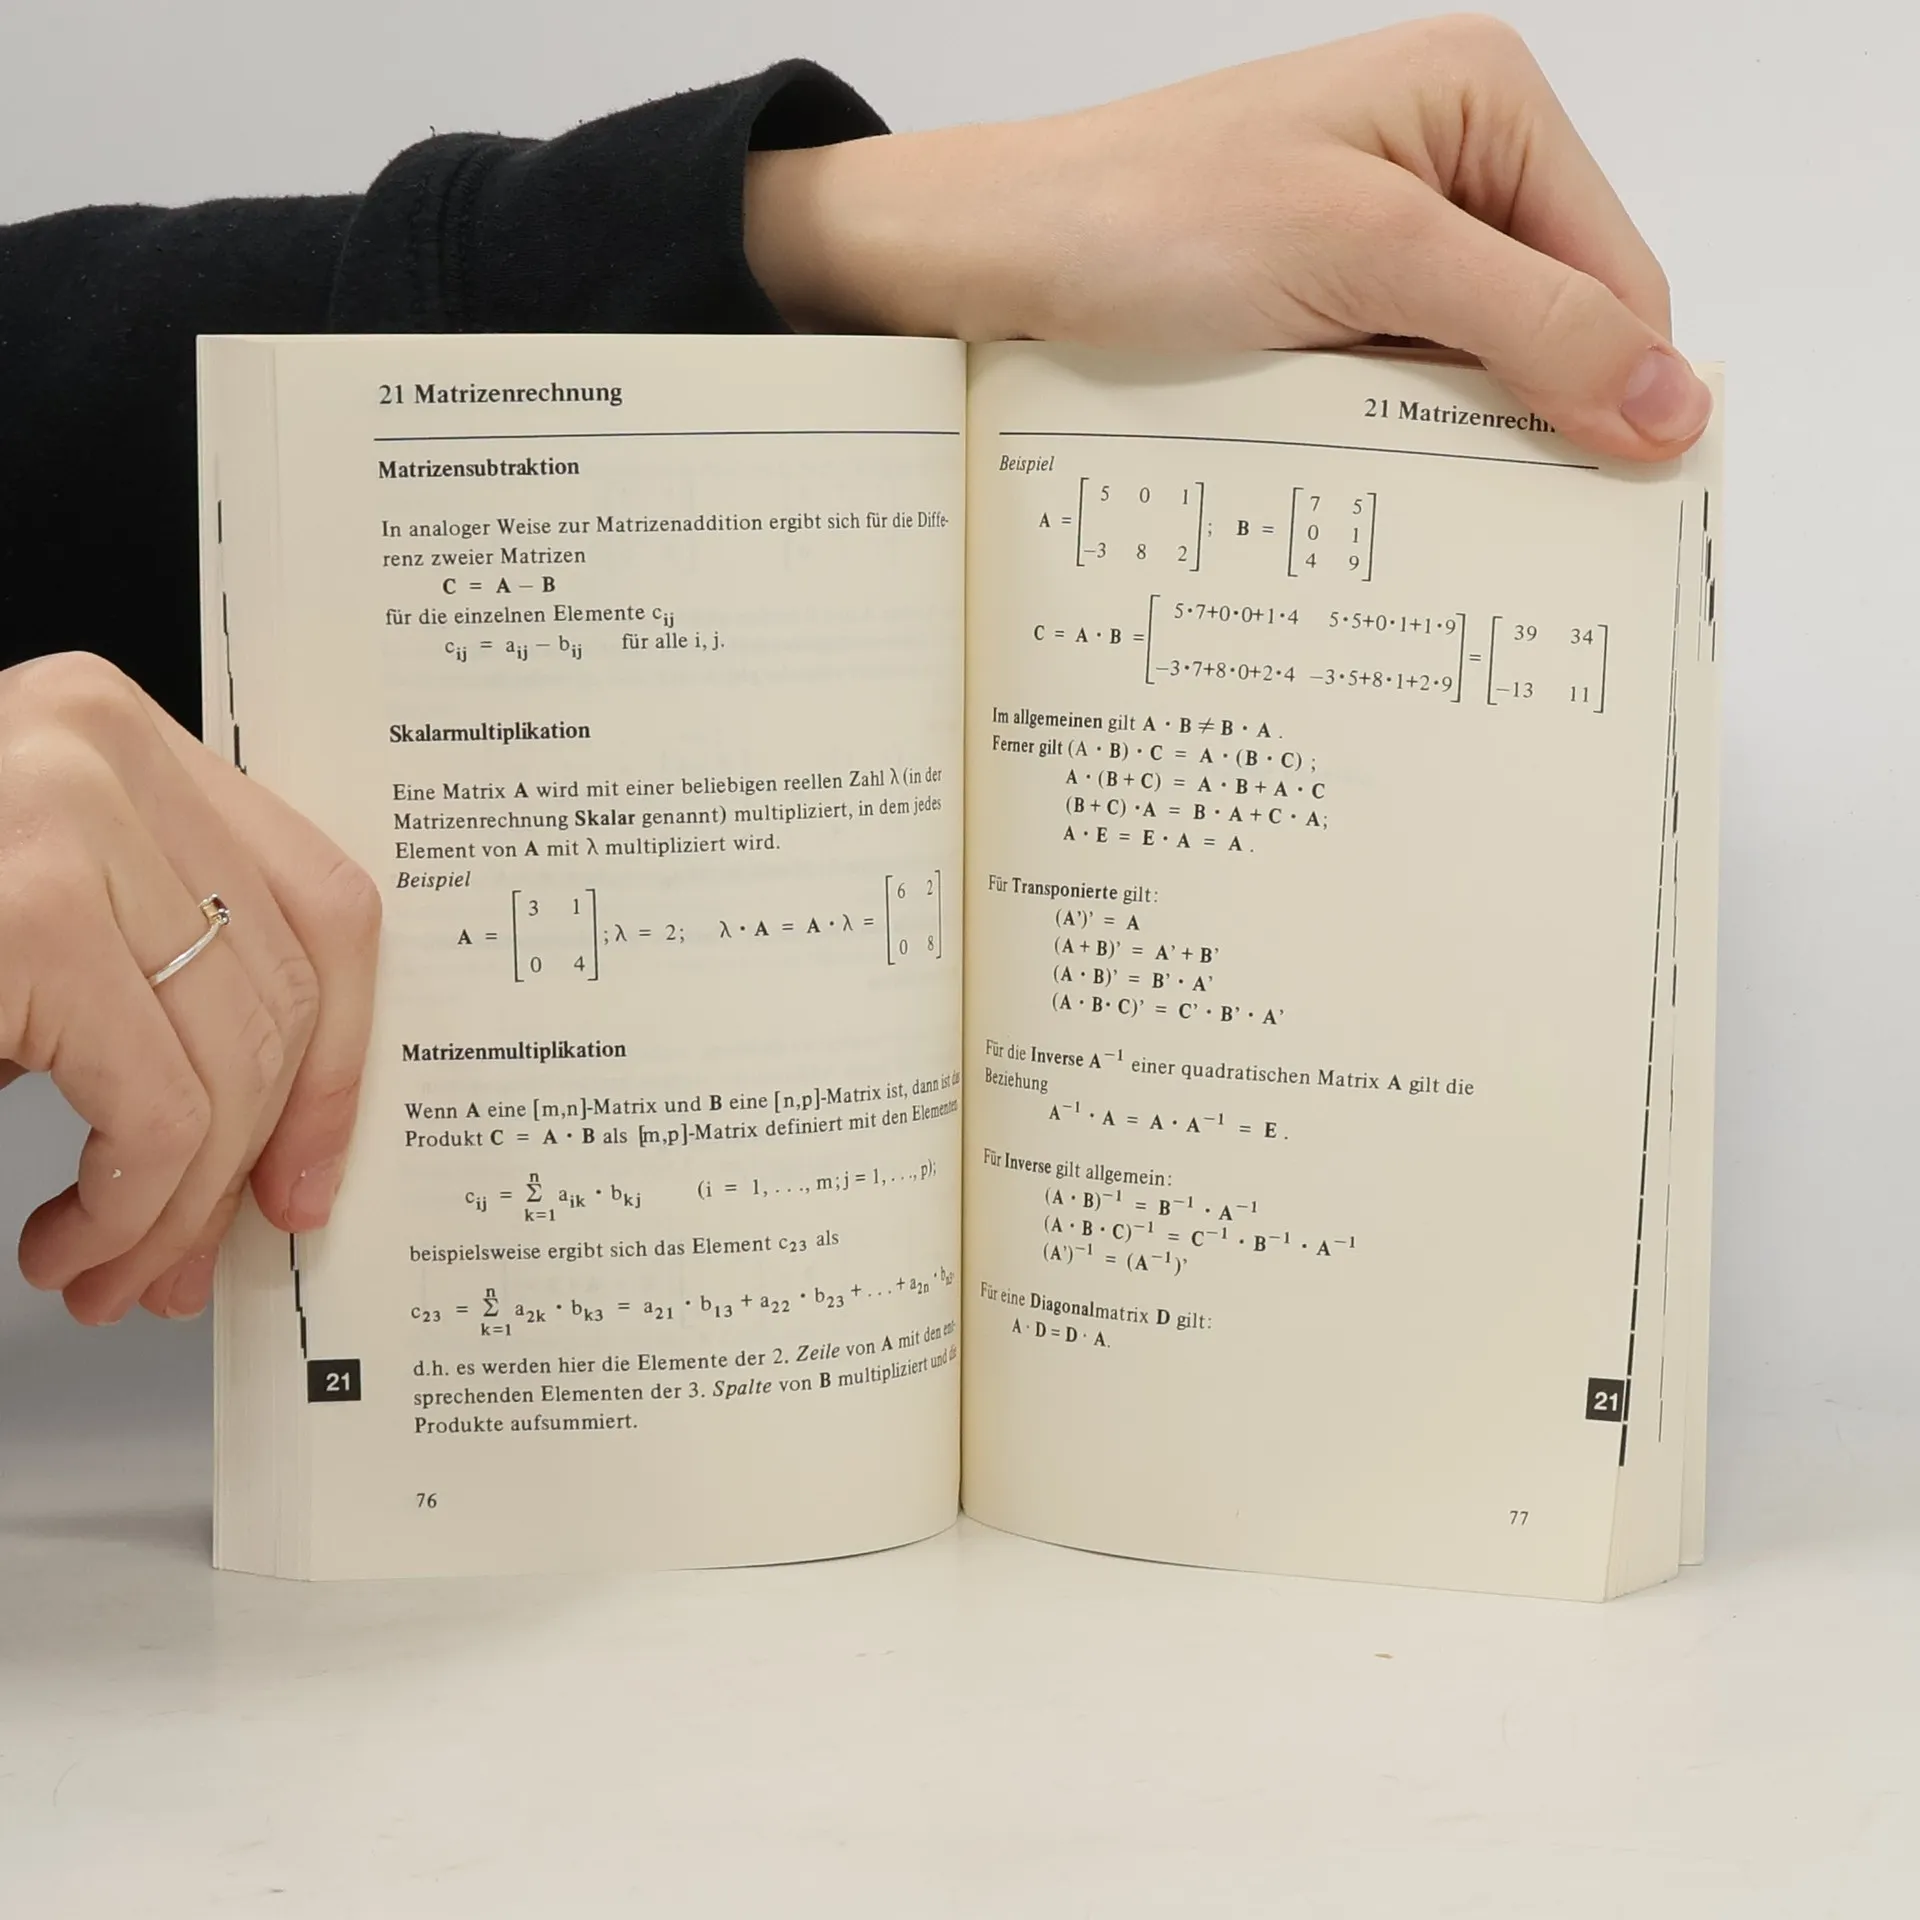 21 Matrizenrechnung
Matrizensubtraktion
In analoger Weise zur Matrizenaddition ergibt sich für die Diffe-
renz zweier Matrizen
C = A – B
für die einzelnen Elemente cij
cij = aij – bij für alle i, j.
Skalarmultiplikation
Eine Matrix A wird mit einer beliebigen reellen Zahl λ (in der
Matrizenrechnung Skalar genannt) multipliziert, in dem jedes
Element von A mit λ multipliziert wird.
Beispiel
A = [3 1; 0 4]; λ = 2; λ · A = A · λ = [6 2; 0 8]
Matrizenmultiplikation
Wenn A eine [m,n]-Matrix und B eine [n,p]-Matrix ist, dann ist das
Produkt C = A · B als [m,p]-Matrix definiert mit den Elementen
cij = Σ(k=1 n) aik · bkj (i = 1, . . ., m; j = 1, . . ., p);
beispielsweise ergibt sich das Element c23 als
c23 = Σ(k=1 n) a2k · bk3 = a21 · b13 + a22 · b23 + . . . + a2n · bn3,
d.h. es werden hier die Elemente der 2. Zeile von A mit den ent-
sprechenden Elementen der 3. Spalte von B multipliziert und die
Produkte aufsummiert.
21
76
21 Matrizenrechn
Beispiel
A = [5 0 1; –3 8 2]; B = [7 5; 0 1; 4 9]
C = A · B = [5·7+0·0+1·4 5·5+0·1+1·9; –3·7+8·0+2·4 –3·5+8·1+2·9] = [39 34; –13 11]
Im allgemeinen gilt A · B ≠ B · A .
Ferner gilt (A · B) · C = A · (B · C) ;
A · (B + C) = A · B + A · C
(B + C) · A = B · A + C · A;
A · E = E · A = A .
Für Transponierte gilt:
(A’)’ = A
(A + B)’ = A’ + B’
(A · B)’ = B’ · A’
(A · B · C)’ = C’ · B’ · A’
Für die Inverse A⁻¹ einer quadratischen Matrix A gilt die
Beziehung
A⁻¹ · A = A · A⁻¹ = E .
Für Inverse gilt allgemein:
(A · B)⁻¹ = B⁻¹ · A⁻¹
(A · B · C)⁻¹ = C⁻¹ · B⁻¹ · A⁻¹
(A’)⁻¹ = (A⁻¹)’
Für eine Diagonalmatrix D gilt:
A · D = D · A.
21
77